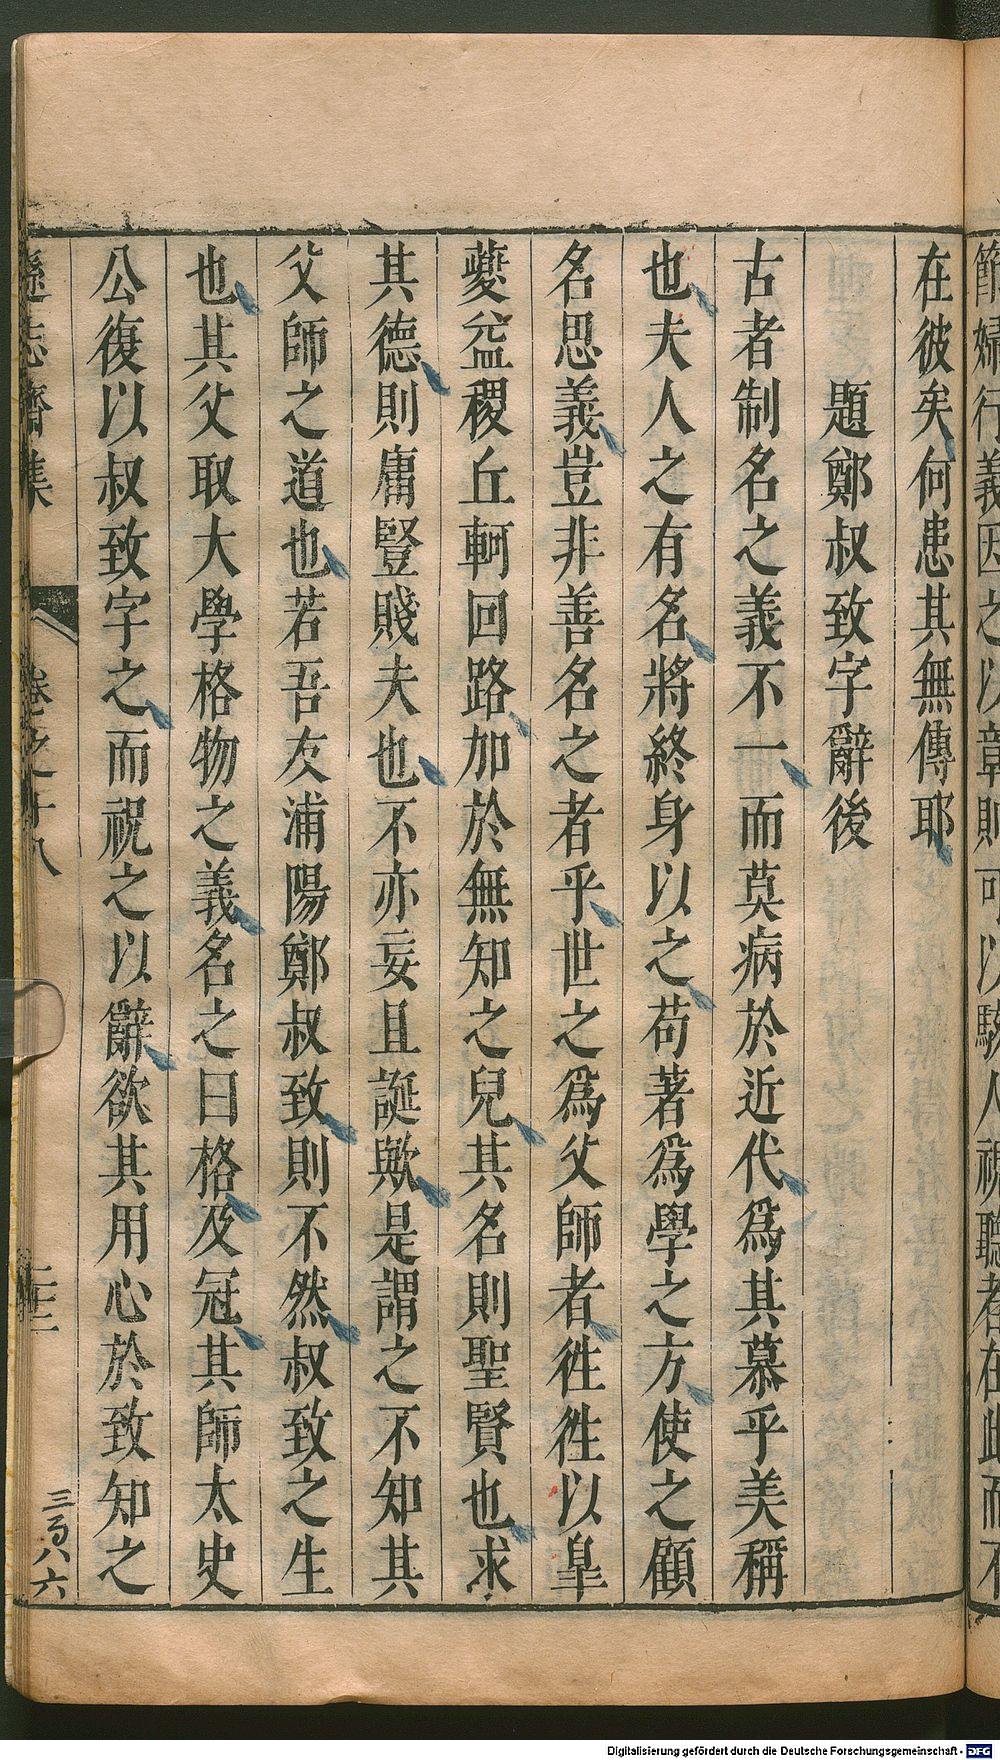 節婦行義因之以章則可以駭人視聽者在此而不
在彼矣何患其無傳耶
題鄭叔致字辭後
古者制名之義不一而莫病於近代爲其慕乎美稱
也夫人之有名將終身以之苟著爲學之方使之顧
名思義豈非善名之者乎世之爲父師者徃徃以臯
夔益稷丘軻回路加於無知之兒其名則聖賢也求
其德則庸豎賤夫也不亦妄且誕歟是謂之不知其
父師之道也若吾友浦陽鄭叔致則不然叔致之生
也其父取大學格物之義名之曰格及冠其師太史
公復以叔致字之而祝之以辭欲其用心於致知之
遜志齋集
卷之十八
二十二
三百八六
Digitalisierung gefördert durch die Deutsche Forschungsgemeinschaft - DFG